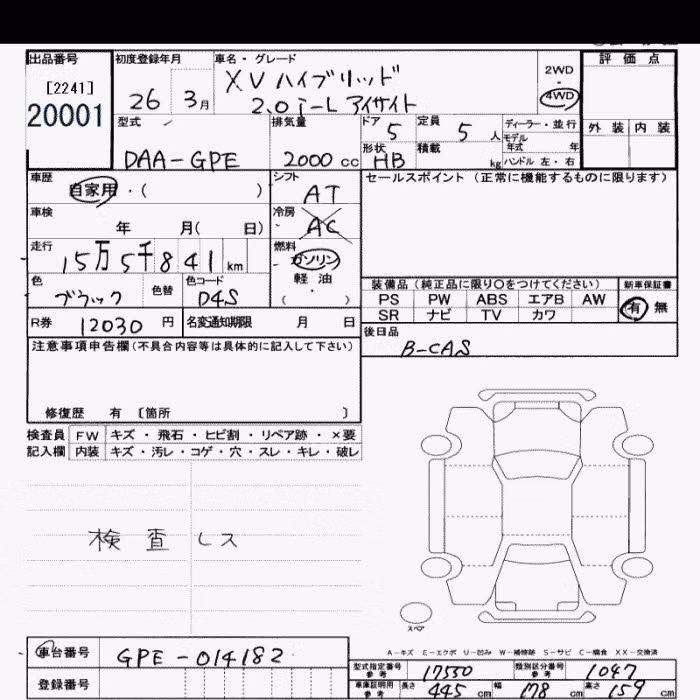 出品番号 初度登録年月 車名・グレード 評価点
[2241] XV ハイブリッド 2WD
20001 26 3月 2.0i-L アイサイト 4WD
型式 排気量 ドア 5 定員 5 人 ディーラー・並行 外装 内装
モデル年式 年
DAA-GPE 2000 cc 形状 HB 積載 kg ハンドル 左・右
車歴 自家用・( ) シフト AT セールスポイント(正常に機能するものに限ります)
車検 年 月( 日) 冷房 AC
走行 15万5千841 km 燃料 ガソリン
軽油
色 ブラック 色替 色コード D4S ・( )
装備品(純正品に限り○をつけてください) 新車保証書
PS PW ABS エアB AW 有 無
SR ナビ TV カワ
R券 12030 円 名変通知期限 月 日 後日品
B-CAS
注意事項申告欄(不具合内容等は具体的に記入して下さい)
修復歴 有 〔箇所 〕
検査員 FW キズ・飛石・ヒビ割・リペア跡・×要
記入欄 内装 キズ・汚レ・コゲ・穴・スレ・キレ・破レ
検査レス
スペア
A-キズ E-エクボ U-凹み W-補修跡 S-サビ C-腐食 XX-交換済
車台番号 GPE-014182
型式指定番号 参考 17550 類別区分番号 参考 1047
登録番号
車庫証明用 参考 長さ 445 cm 幅 178 cm 高さ 159 cm